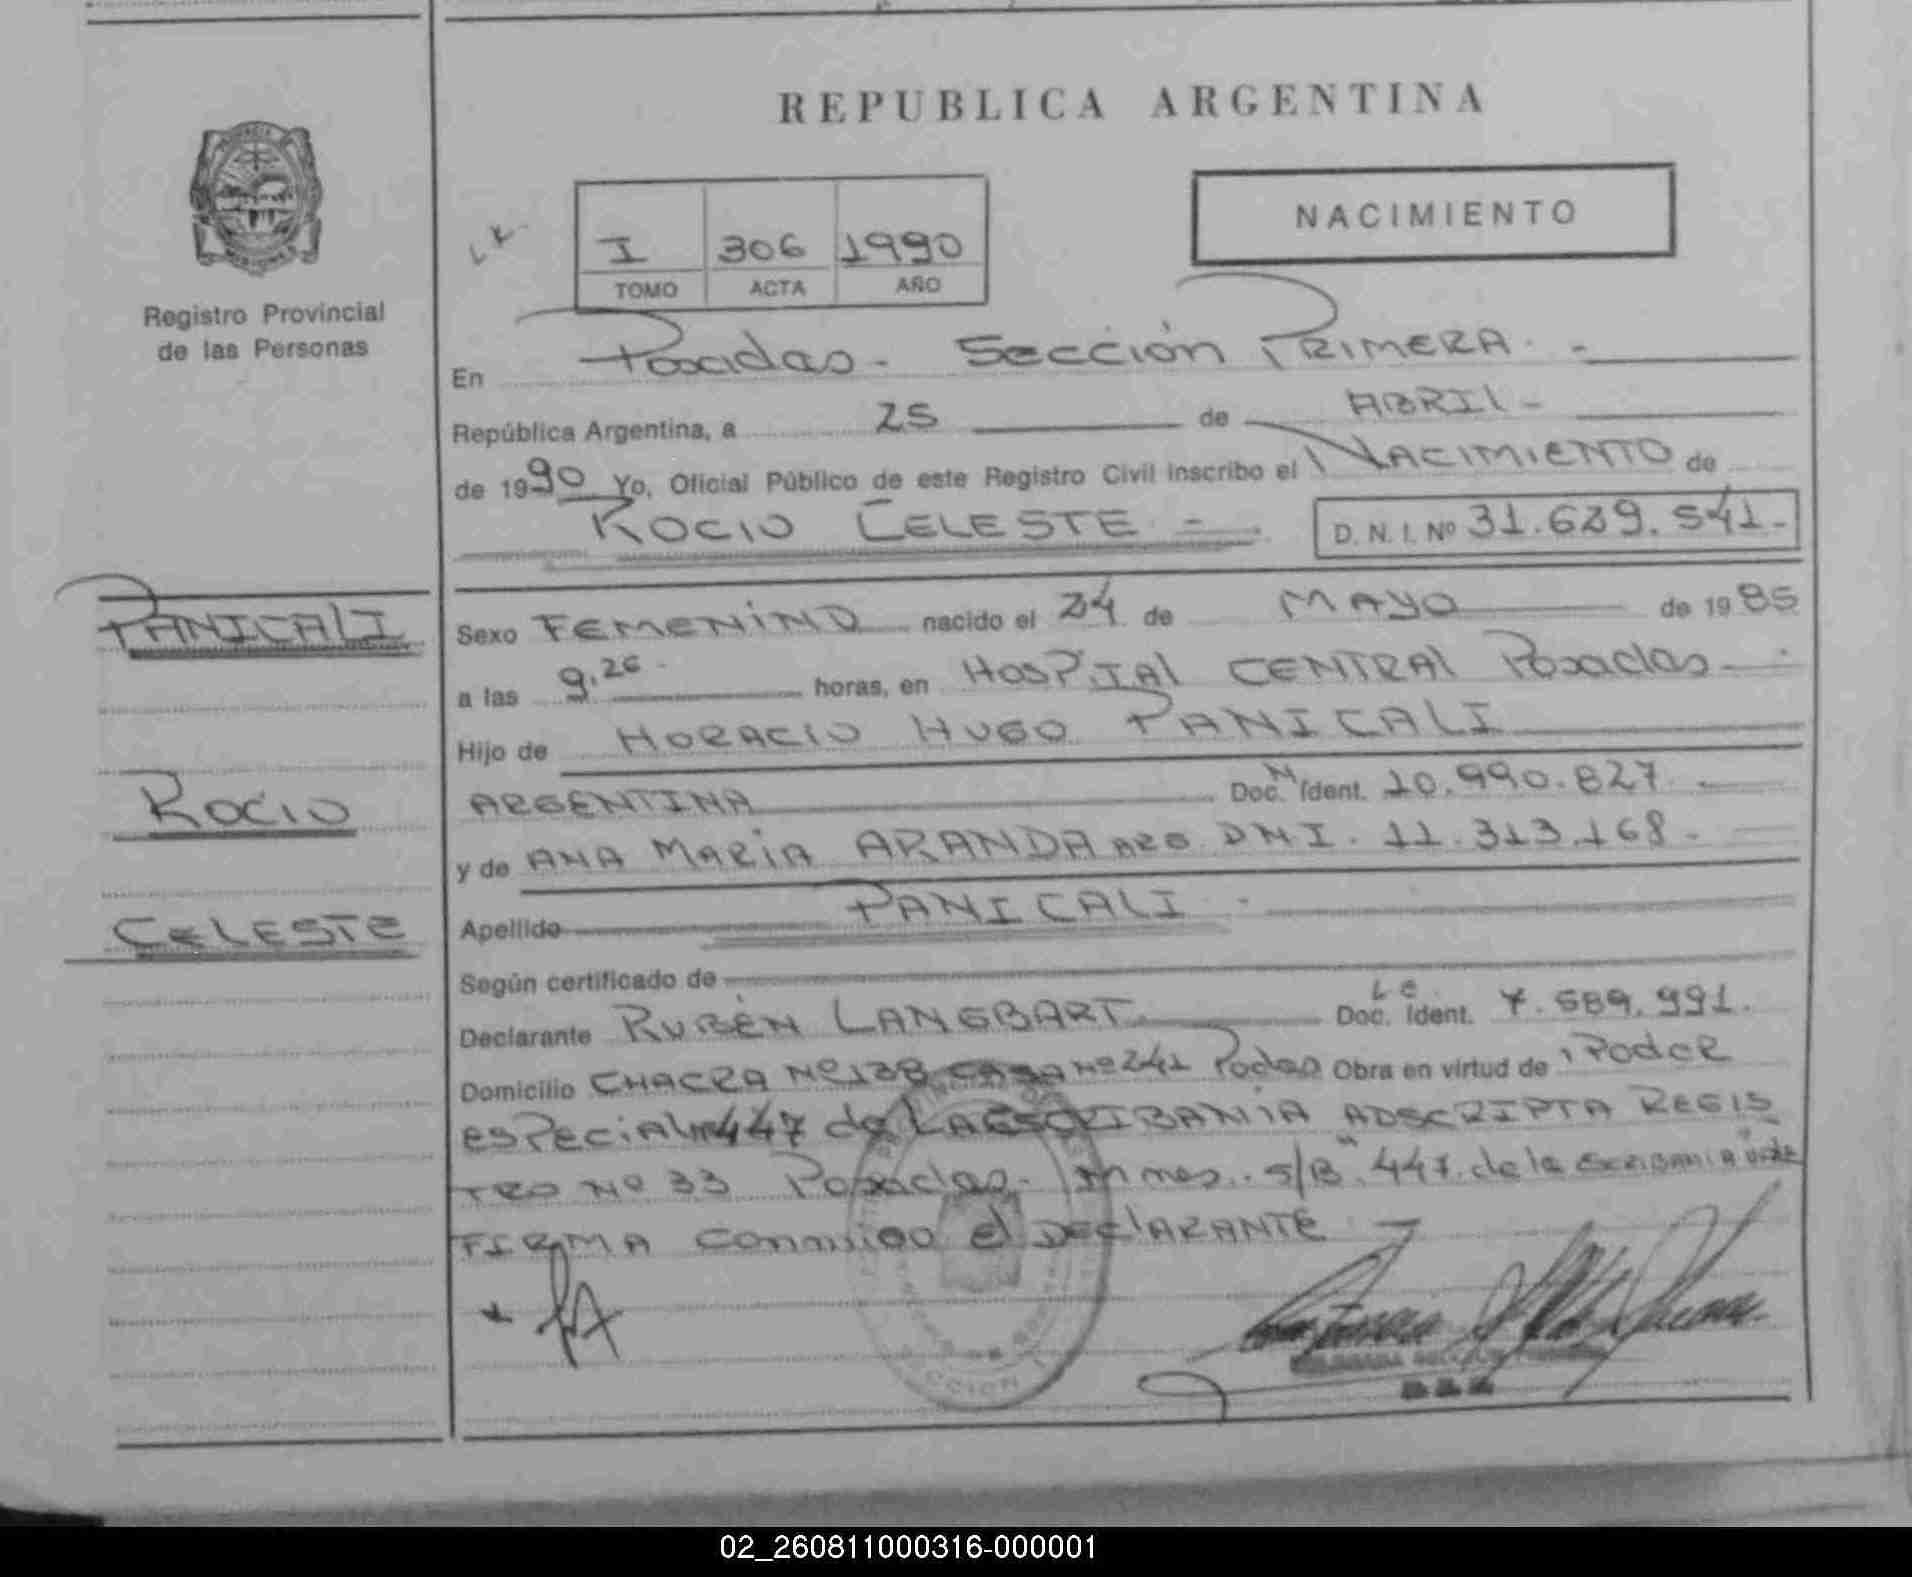 REPUBLICA ARGENTINA
NACIMIENTO
I 306 1990
TOMO ACTA AÑO
Registro Provincial
de las Personas
En Posadas - Sección PRIMERA. -
República Argentina, a 25 de ABRIL -
de 1990 Yo, Oficial Público de este Registro Civil inscribo el NACIMIENTO de
ROCIO CELESTE - D. N. I. Nº 31.629.541.-
PANICALI
ROCIO
CELESTE
Sexo FEMENINO nacido el 24 de MAYO de 1985
a las 9,26 - horas, en HOSPITAL CENTRAL Posadas -
Hijo de HORACIO HUGO PANICALI
ARGENTINA Doc. Ident. 10.990.827. -
y de ANA MARIA ARANDA ARG. DNI. 11.313.168 -
Apellido PANICALI -
Según certificado de
Declarante RUBEN LANGBART L E Doc. Ident. 7.589.991.
Domicilio CHACRA Nº 138 CASA Nº 241 Podas Obra en virtud de Poder
ESPECIAL Nº 447 de LA ESCRIBANIA ADSCRIPTA REGIS
TRO Nº 33 Posadas. S/B 447 de la ESCRIBANIA
FIRMA conmigo el DECLARANTE
SECCION
02_260811000316-000001